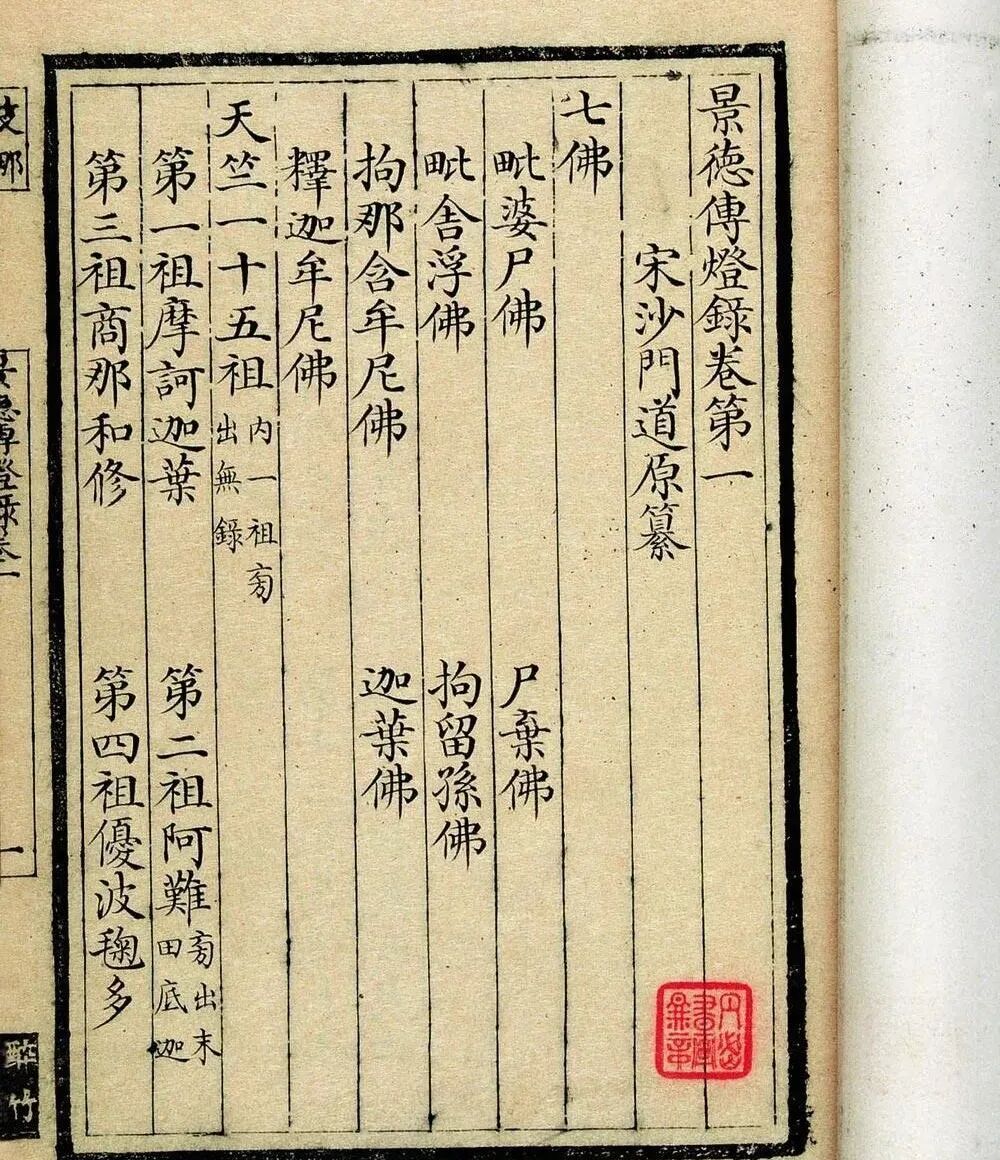 景徳傳燈錄卷第一
宋沙門道原纂
七佛
毗婆尸佛 尸棄佛
毗舍浮佛 拘留孫佛
拘那含牟尼佛 迦葉佛
釋迦牟尼佛
天竺一十五祖 內一祖旁出無錄
第一祖摩訶迦葉 第二祖阿難 旁出末田底迦
第三祖商那和修 第四祖優波毱多
支那
景徳傳燈錄卷一
一
竹